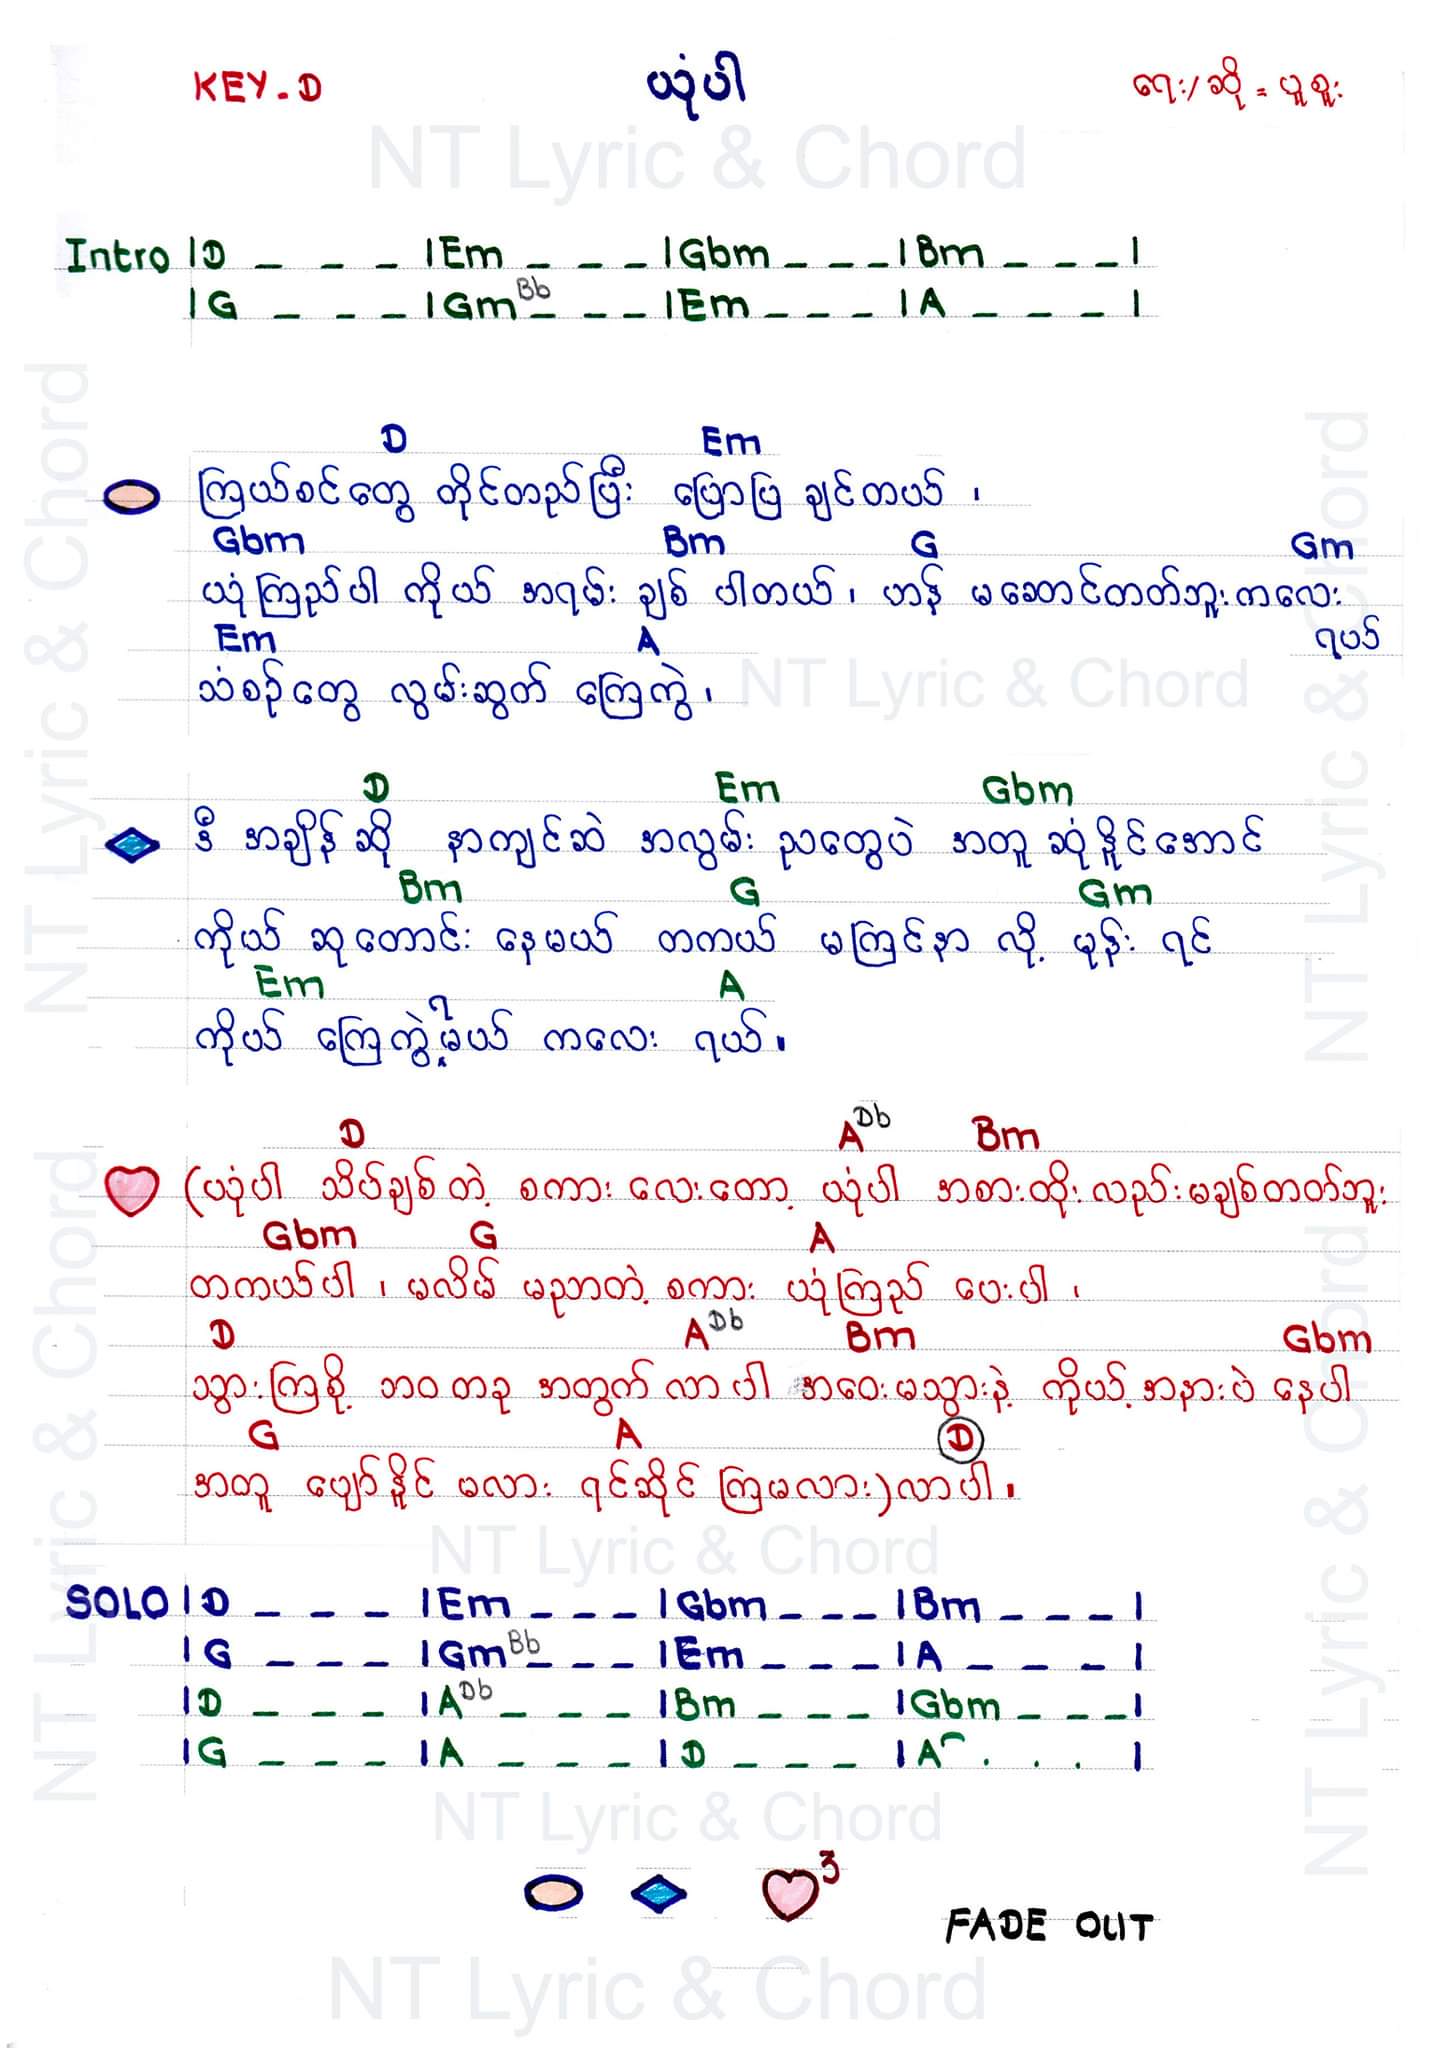 KEY-D ယုံပါ ရေး/ဆို = ယူစူး
NT Lyric & Chord
Intro |D _ _ _ |Em _ _ _ |Gbm _ _ _ |Bm _ _ _ |
|G _ _ _ |Gm Bb _ _ _ |Em _ _ _ |A _ _ _ |
D Em
ကြယ်စင်တွေ တိုင်တည်ပြီး ပြောပြ ချင်တယ် ၊
Gbm Bm G Gm
ယုံကြည်ပါ ကိုယ် အရမ်း ချစ် ပါတယ် ၊ ဟန် မဆောင်တတ်ဘူး ကလေး
ရယ်
Em A
သံစဉ်တွေ လွမ်းဆွတ် ကြေကွဲ ၊
NT Lyric & Chord
D Em Gbm
ဒီ အချိန် ဆို နာကျင်ဆဲ အလွမ်း ညတွေပဲ အတူ ဆုံနိူင်အောင်
Bm G Gm
ကိုယ် ဆုတောင်း နေမယ် တကယ် မကြင်နာ လို့ မုန်း ရင်
Em A
ကိုယ် ကြေကွဲ ရမယ် ကလေး ရယ် ။
D A Db Bm
(ယုံပါ သိပ်ချစ်တဲ့ စကား လေးတော့ ယုံပါ အစားထိုး လည်း မချစ်တတ်ဘူး
Gbm G A
တကယ်ပါ ၊ မလိမ် မညာတဲ့ စကား ယုံကြည် ပေးပါ ၊
D A Db Bm Gbm
သွားကြစို့ ဘဝ တခု အတွက် လာပါ အဝေး မသွားနဲ့ ကိုယ့် အနားပဲ နေပါ
G A D
အတူ ပျော်နိူင် မလား ရင်ဆိုင် ကြမလား) လာပါ ။
NT Lyric & Chord
SOLO |D _ _ _ |Em _ _ _ |Gbm _ _ _ |Bm _ _ _ |
|G _ _ _ |Gm Bb _ _ _ |Em _ _ _ |A _ _ _ |
|D _ _ _ |A Db _ _ _ |Bm _ _ _ |Gbm _ _ _ |
|G _ _ _ |A _ _ _ |D _ _ _ |A . . . |
NT Lyric & Chord
3
FADE OUT
NT Lyric & Chord
NT Lyric & Chord
NT Lyric & Chord
NT Lyric & Chord
NT Lyric & Chord